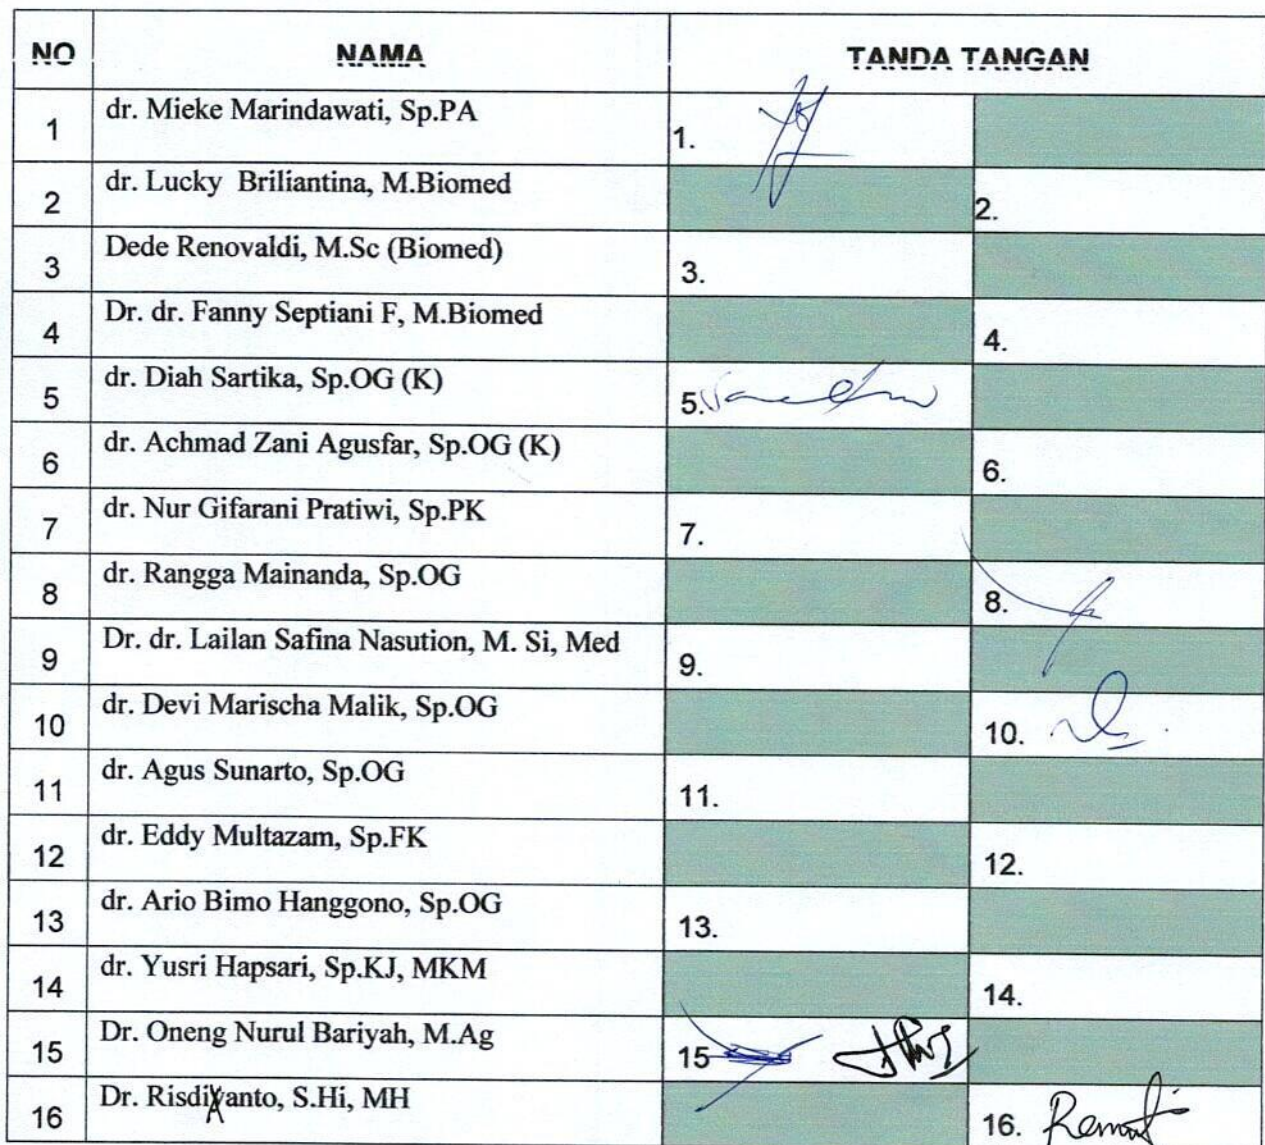 NO NAMA TANDA TANGAN
1 dr. Mieke Marindawati, Sp.PA 1.
2 dr. Lucky Briliantina, M.Biomed 2.
3 Dede Renovaldi, M.Sc (Biomed) 3.
4 Dr. dr. Fanny Septiani F, M.Biomed 4.
5 dr. Diah Sartika, Sp.OG (K) 5.
6 dr. Achmad Zani Agusfar, Sp.OG (K) 6.
7 dr. Nur Gifarani Pratiwi, Sp.PK 7.
8 dr. Rangga Mainanda, Sp.OG 8.
9 Dr. dr. Lailan Safina Nasution, M. Si, Med 9.
10 dr. Devi Marischa Malik, Sp.OG 10.
11 dr. Agus Sunarto, Sp.OG 11.
12 dr. Eddy Multazam, Sp.FK 12.
13 dr. Ario Bimo Hanggono, Sp.OG 13.
14 dr. Yusri Hapsari, Sp.KJ, MKM 14.
15 Dr. Oneng Nurul Bariyah, M.Ag 15
16 Dr. Risdiyanto, S.Hi, MH 16.